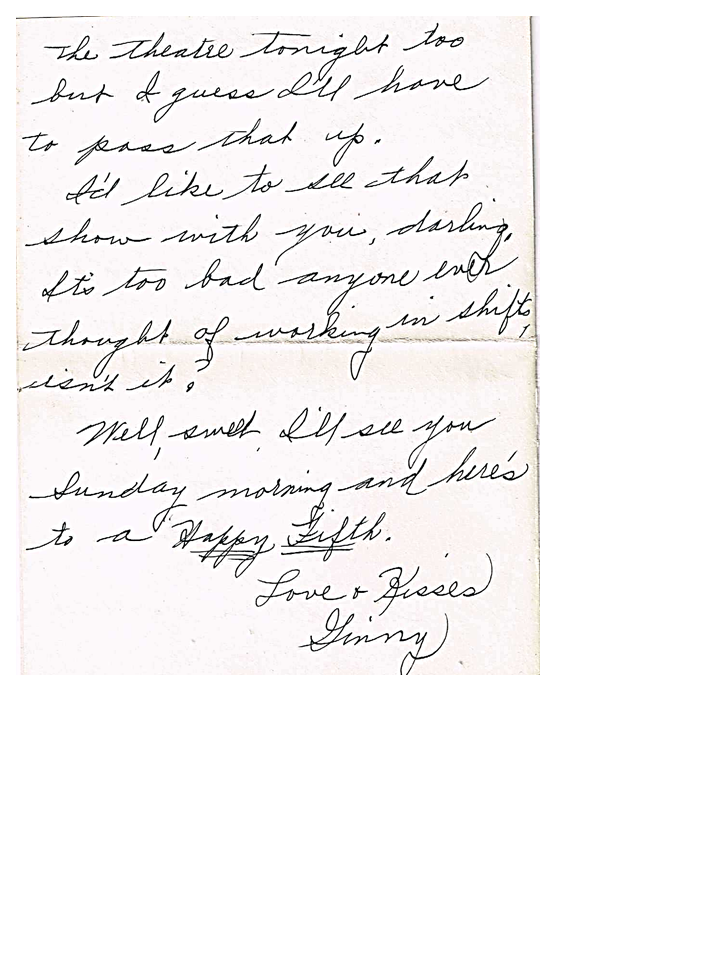 the theatre tonight too
but I guess I'll have
to pass that up.
I'd like to see that
show with you, darling.
It's too bad anyone ever
thought of working in shifts,
isn't it?
Well, sweet, I'll see you
Sunday morning and here's
to a Happy Fifth.
Love & Kisses
Ginny